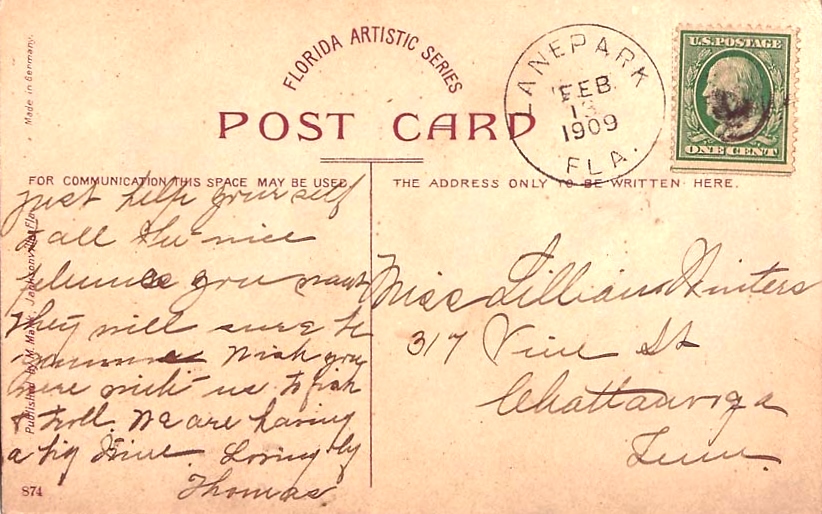 FLORIDA ARTISTIC SERIES
POST CARD
LANEPARK
FEB.
13
1909
FLA.
U.S. POSTAGE
ONE CENT
Made in Germany.
FOR COMMUNICATION THIS SPACE MAY BE USED.
THE ADDRESS ONLY TO BE WRITTEN HERE.
Published by M. Mark, Jacksonville, Fla.
874
just help yourself
all the nice
you want
They will sure be
Wish you
were with us to fish
& troll. We are having
a big time. Lovingly
Thomas
Miss Lillian Winters
317 Vine St
Chattanooga
Tenn.